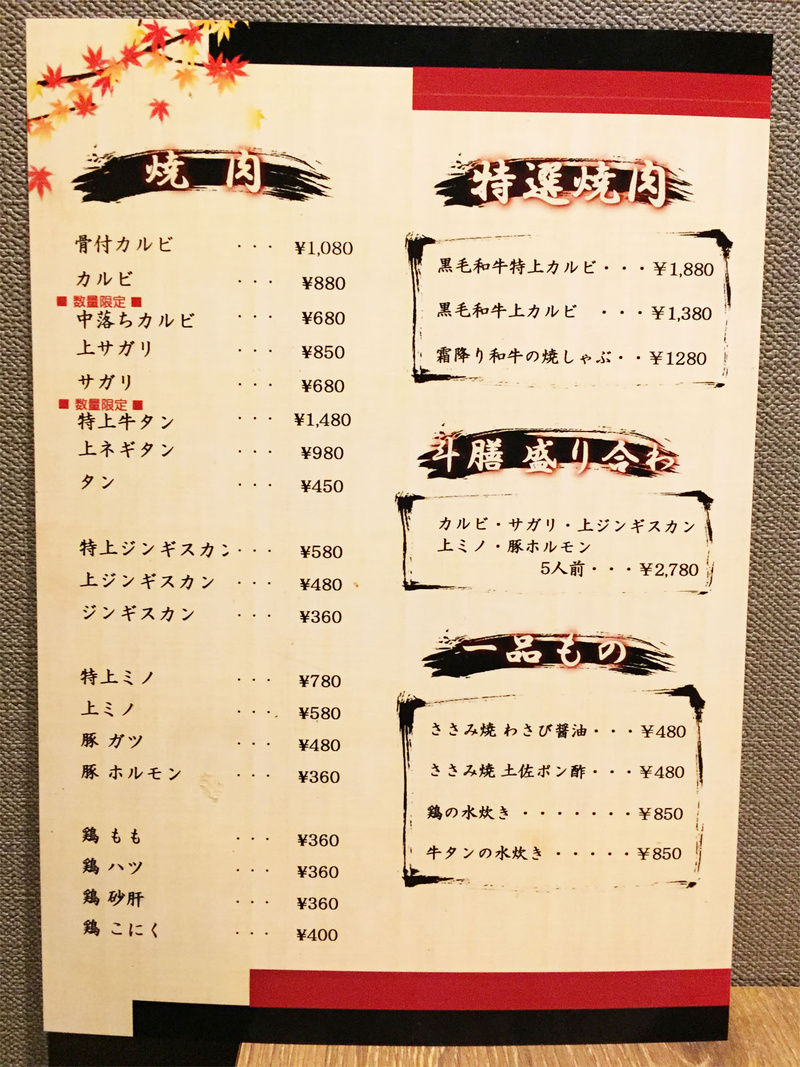 焼肉
骨付カルビ ・・・ ¥1,080
カルビ ・・・ ¥880
■ 数量限定 ■
中落ちカルビ ・・・ ¥680
上サガリ ・・・ ¥850
サガリ ・・・ ¥680
■ 数量限定 ■
特上牛タン ・・・ ¥1,480
上ネギタン ・・・ ¥980
タン ・・・ ¥450
特上ジンギスカン・・・ ¥580
上ジンギスカン ・・・ ¥480
ジンギスカン ・・・ ¥360
特上ミノ ・・・ ¥780
上ミノ ・・・ ¥580
豚 ガツ ・・・ ¥480
豚 ホルモン ・・・ ¥360
鶏 もも ・・・ ¥360
鶏 ハツ ・・・ ¥360
鶏 砂肝 ・・・ ¥360
鶏 こにく ・・・ ¥400
特選焼肉
黒毛和牛特上カルビ・・・¥1,880
黒毛和牛上カルビ ・・・¥1,380
霜降り和牛の焼しゃぶ・・¥1280
斗膳 盛り合わ
カルビ・サガリ・上ジンギスカン
上ミノ・豚ホルモン
5人前・・・¥2,780
一品もの
ささみ焼 わさび醤油・・・¥480
ささみ焼 土佐ポン酢・・・¥480
鶏の水炊き ・・・・・・・¥850
牛タンの水炊き ・・・・・¥850